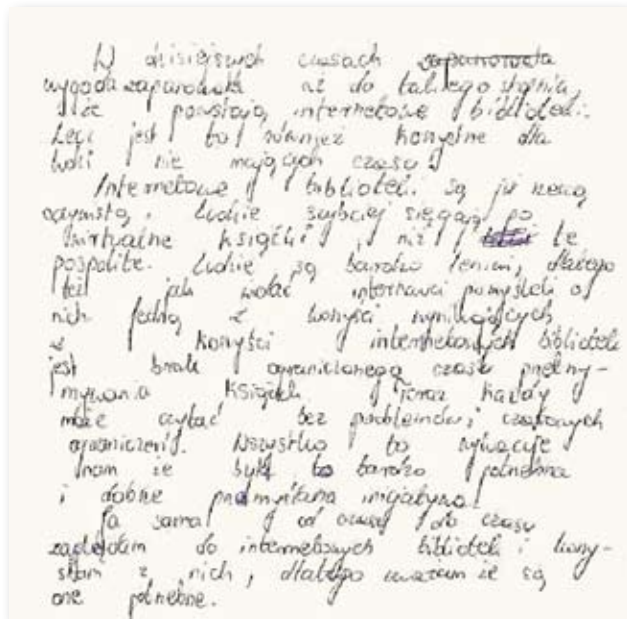 W dzisiejszych czasach zapanowała
wygoda zapanowała aż do takiego stopnia,
że powstają internetowe biblioteki.
Lecz jest to również korzystne dla
ludzi nie mających czasu.
Internetowe biblioteki są już rzeczą
oczywistą, ludzie szybciej sięgają po
wirtualne książki, niż te
pospolite. Ludzie są bardzo leniwi, dlatego
też jak widać internauci pomyśleli o
nich. Jedną z korzyści wynikających
z korzyści internetowych bibliotek
jest brak ograniczonego czasu przetrzy-
mywania książek. Teraz każdy
może czytać bez problemów i czasowych
ograniczeń. Wszystko to wskazuje
nam że była to bardzo potrzebna
i dobrze przemyślana inicjatywa.
Ja sama od czasu do czasu
zaglądam do internetowych bibliotek i korzy-
stam z nich, dlatego uważam że są
one potrzebne.